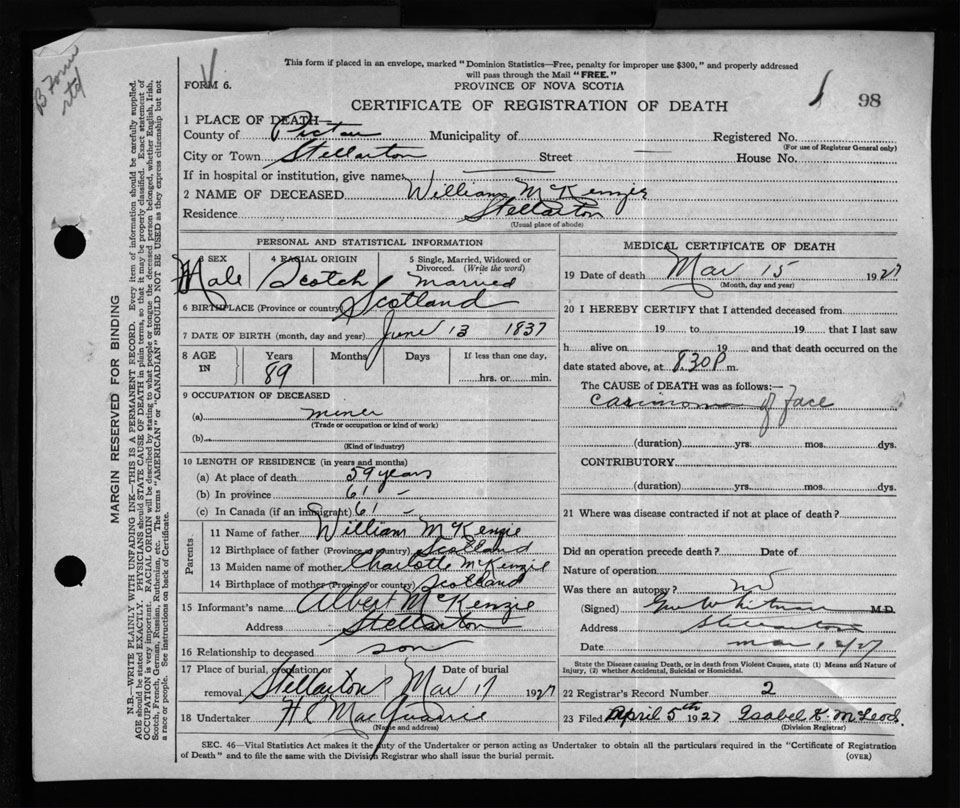 B Form
rtd
This form if placed in an envelope, marked "Dominion Statistics—Free, penalty for improper use $300," and properly addressed
will pass through the Mail "FREE."
FORM 6.
PROVINCE OF NOVA SCOTIA
CERTIFICATE OF REGISTRATION OF DEATH
98
1 PLACE OF DEATH—
County of Pictou Municipality of Registered No.
(For use of Registrar General only)
City or Town Stellarton Street House No.
If in hospital or institution, give name
2 NAME OF DECEASED William McKenzie
Residence Stellarton
(Usual place of abode)
PERSONAL AND STATISTICAL INFORMATION
3 SEX 4 RACIAL ORIGIN 5 Single, Married, Widowed or Divorced. (Write the word)
Male Scotch Married
6 BIRTHPLACE (Province or country) Scotland
7 DATE OF BIRTH (month, day and year) June 13 1837
8 AGE IN Years Months Days If less than one day,
89 hrs. or min.
9 OCCUPATION OF DECEASED
(a) miner
(Trade or occupation or kind of work)
(b)
(Kind of industry)
10 LENGTH OF RESIDENCE (in years and months)
(a) At place of death 59 years
(b) In province 61 –
(c) In Canada (if an immigrant) 61 –
Parents
11 Name of father William McKenzie
12 Birthplace of father (Province or country) Scotland
13 Maiden name of mother Charlotte McKenzie
14 Birthplace of mother (Province or country) Scotland
15 Informant's name Albert McKenzie
Address Stellarton
16 Relationship to deceased son
17 Place of burial, cremation or removal Stellarton Date of burial Mar 17 1927
18 Undertaker H MacQuarrie
(Name and address)
MEDICAL CERTIFICATE OF DEATH
19 Date of death Mar 15 1927
(Month, day and year)
20 I HEREBY CERTIFY that I attended deceased from
19 to 19 that I last saw
h alive on 19 and that death occurred on the
date stated above, at 8.30 P m.
The CAUSE of DEATH was as follows:—
Carsinoma of face
(duration) yrs. mos. dys.
CONTRIBUTORY
(duration) yrs. mos. dys.
21 Where was disease contracted if not at place of death?
Did an operation precede death? Date of
Nature of operation
Was there an autopsy? no
(Signed) Geo Whitman M.D.
Address Stellarton
Date mar
State the Disease causing Death, or in death from Violent Causes, state (1) Means and Nature of
Injury, (2) whether Accidental, Suicidal or Homicidal.
22 Registrar's Record Number 2
23 Filed April 5th 1927 Isabel K. McLeod.
(Division Registrar)
SEC. 46—Vital Statistics Act makes it the duty of the Undertaker or person acting as Undertaker to obtain all the particulars required in the "Certificate of Registration
of Death" and to file the same with the Division Registrar who shall issue the burial permit. (OVER)
MARGIN RESERVED FOR BINDING
N.B.—WRITE PLAINLY WITH UNFADING INK—THIS IS A PERMANENT RECORD. Every item of information should be carefully supplied.
AGE should be stated EXACTLY. PHYSICIANS should STATE CAUSE OF DEATH in plain terms, so that it may be properly classified. Exact statement of
OCCUPATION is very important. RACIAL ORIGIN will be described by stating to what people or tongue the deceased person belonged, whether English, Irish,
Scotch, French, German, Russian, Ruthenian, etc. The terms "AMERICAN" or "CANADIAN" SHOULD NOT BE USED as they express citizenship but not
a race or people. See instructions on back of Certificate.